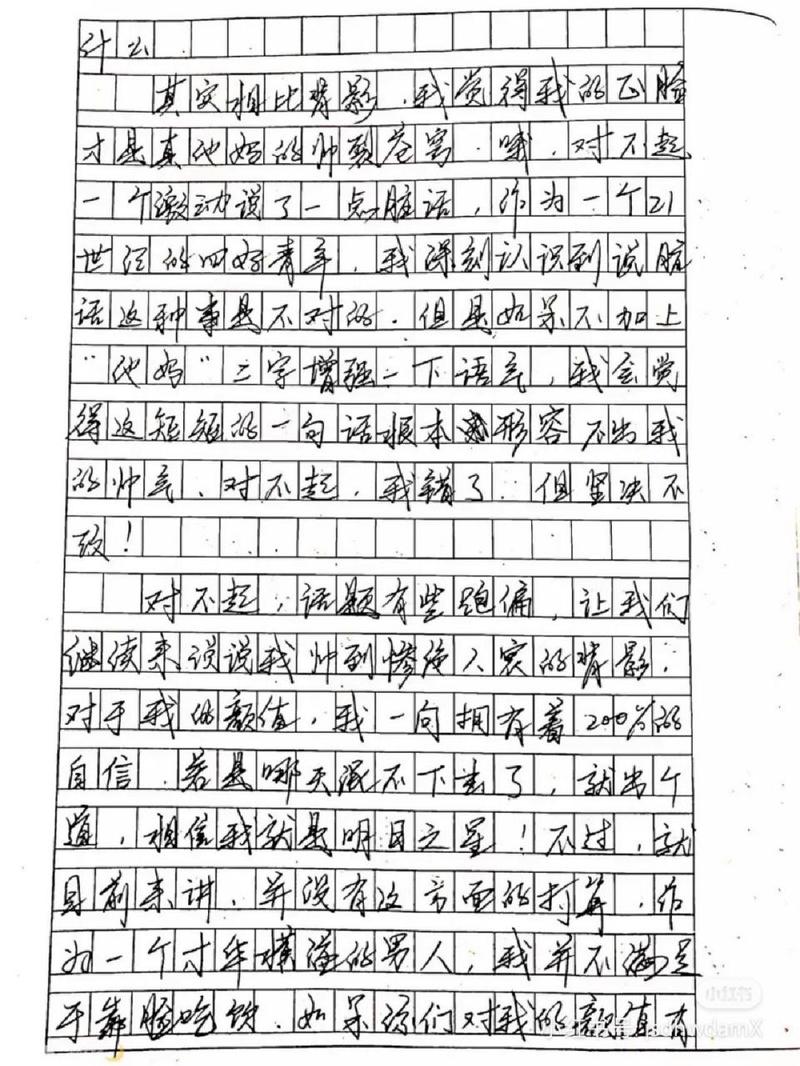 什么
其实相比背影，我觉得我的正脸
才是真他妈的帅裂苍穹.哦，对不起
一个激动说了一点脏话，作为一个21
世纪的四好青年，我深刻认识到说脏
话这种事是不对的.但是如果不加上
“他妈”二字增强一下语气，我会觉
得这短短的一句话根本形容不出我
的帅气、对不起，我错了.但坚决不
改！
对不起，话题有些跑偏，让我们
继续来说说我帅到惨绝人寰的背影.
对于我的颜值，我一向拥有着200%的
自信.若是哪天混不下去了，就出个
道，相信我就是明日之星！不过，就
目前来讲，并没有这方面的打算.作
为一个才华横溢的男人，我并不满足
于靠脸吃饭.如果你们对我的颜值有
小红书